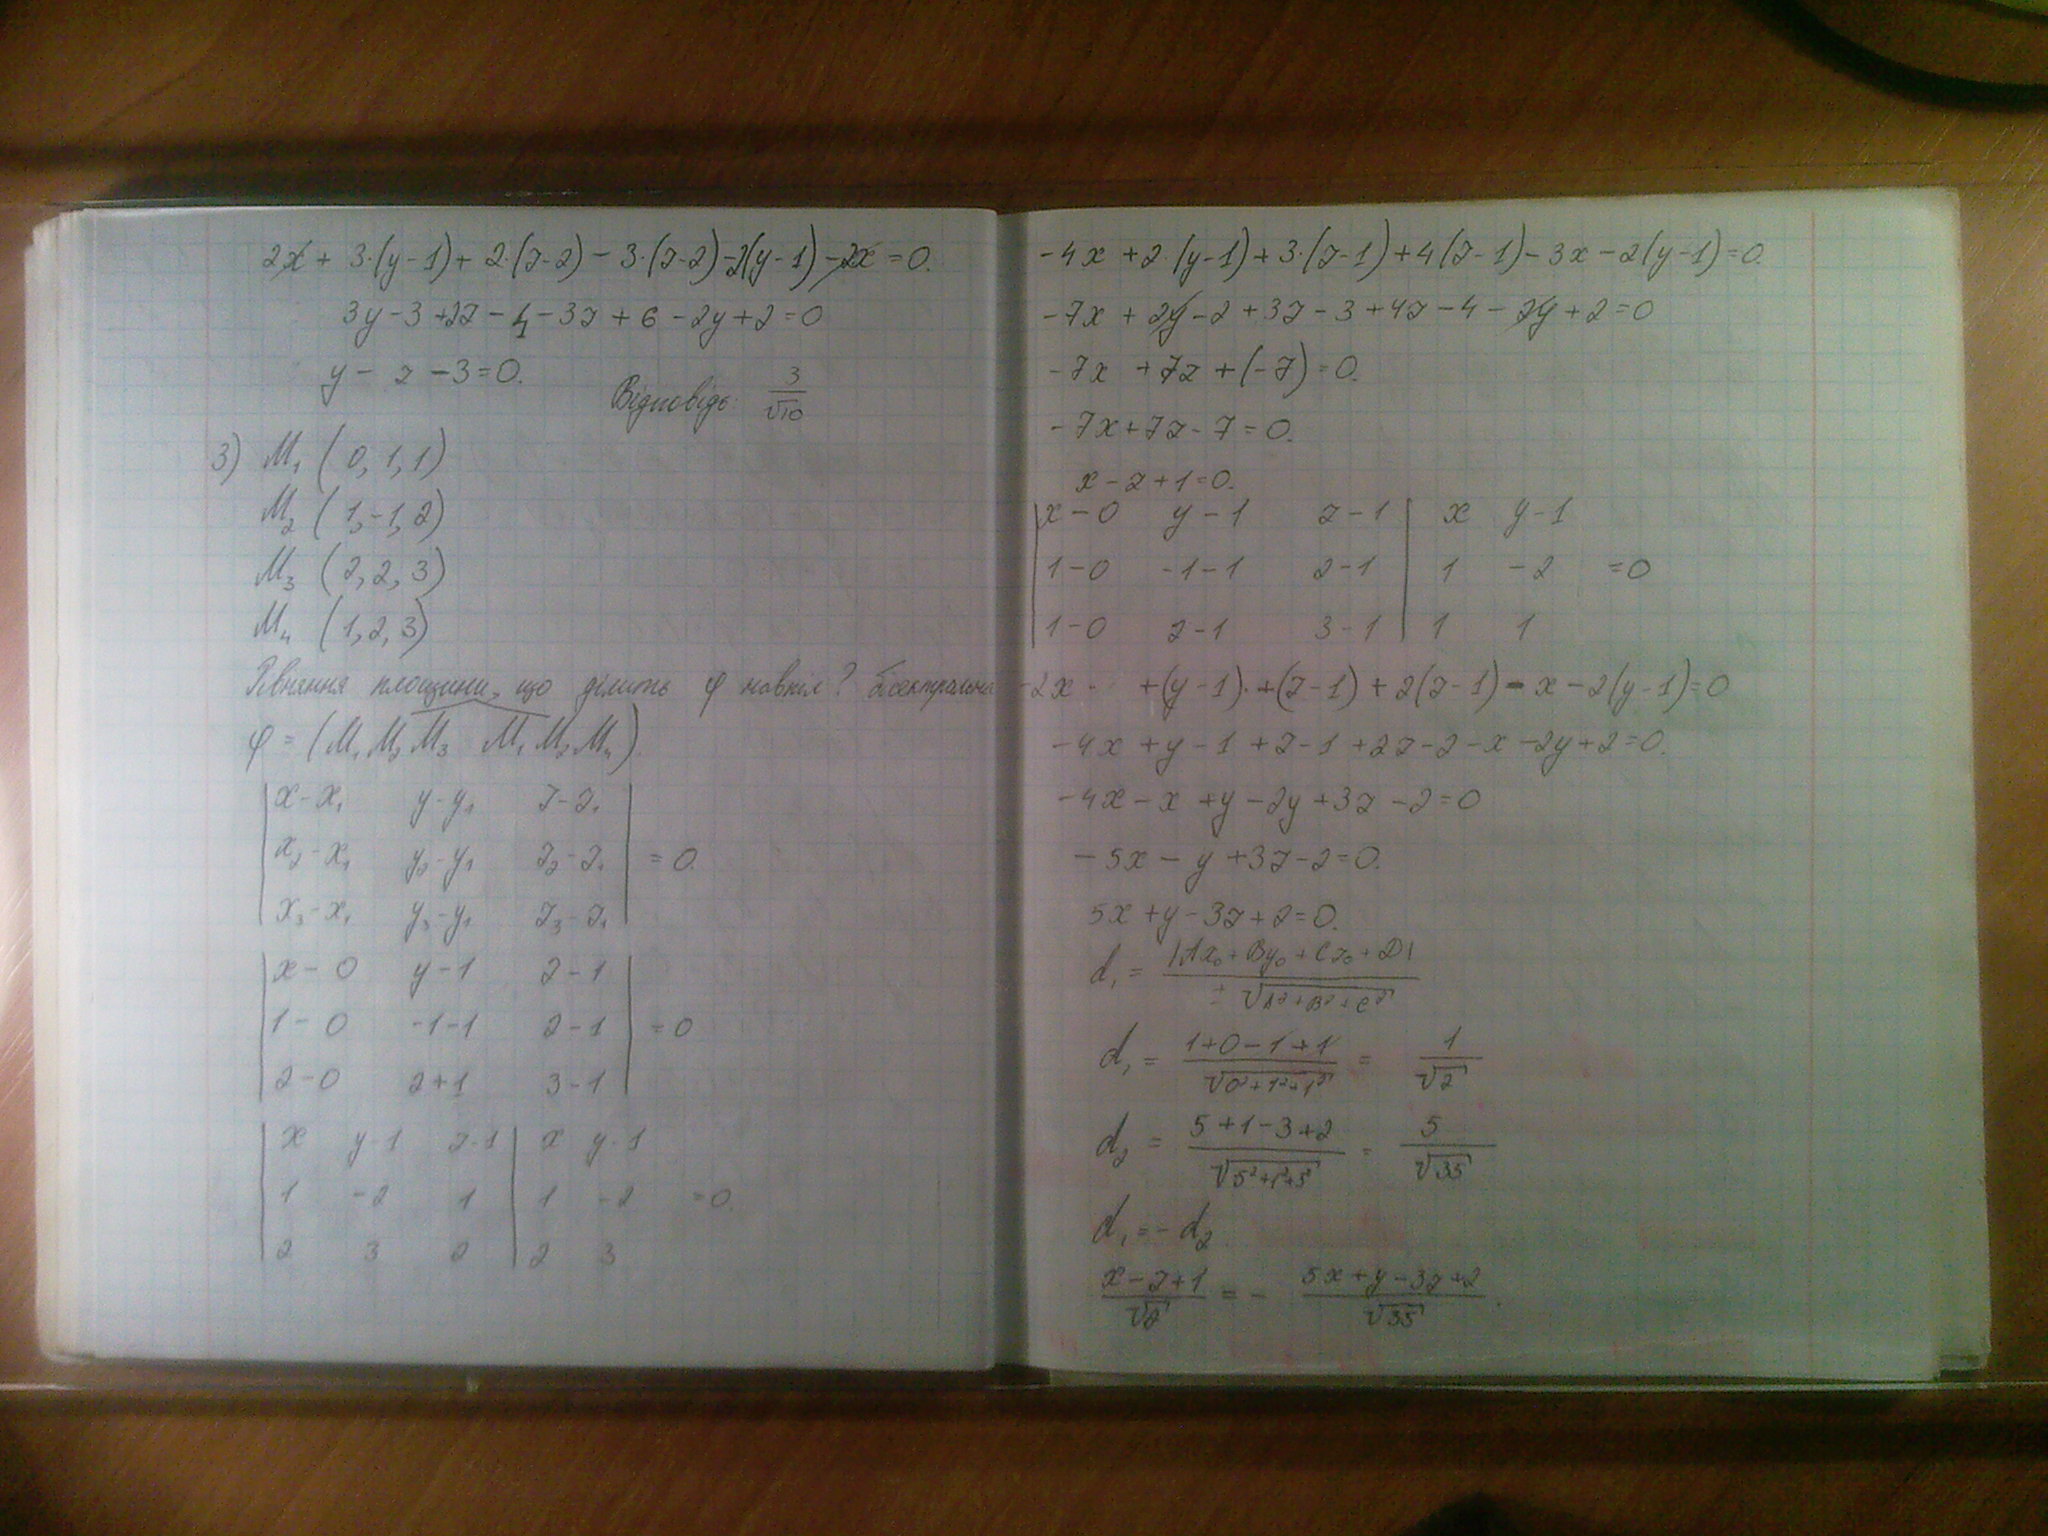 2x + 3·(y-1) + 2·(z-2) - 3·(z-2) - 2(y-1) - 2x = 0.
3y - 3 + 2z - 4 - 3z + 6 - 2y + 2 = 0
y - z - 3 = 0.
Відповідь: 3/√10
3) M₁ (0, 1, 1)
M₂ (1, -1, 2)
M₃ (2, 2, 3)
M₄ (1, 2, 3)
Рівняння площини, що ділить φ навпіл? бісектральна
φ = (M₁M₂M₃ M₁M₂M₄).
| x-x₁ y-y₁ z-z₁ |
| x₂-x₁ y₂-y₁ z₂-z₁ | = 0.
| x₃-x₁ y₃-y₁ z₃-z₁ |
| x-0 y-1 z-1 |
| 1-0 -1-1 2-1 | = 0
| 2-0 2+1 3-1 |
| x y-1 z-1 | x y-1
| 1 -2 1 | 1 -2 = 0.
| 2 3 2 | 2 3
-4x + 2·(y-1) + 3·(z-1) + 4(z-1) - 3x - 2(y-1) = 0.
-7x + 2y - 2 + 3z - 3 + 4z - 4 - 2y + 2 = 0
-7x + 7z + (-7) = 0.
-7x + 7z - 7 = 0.
x - z + 1 = 0.
| x-0 y-1 z-1 | x y-1
| 1-0 -1-1 2-1 | 1 -2 = 0
| 1-0 2-1 3-1 | 1 1
-2x · + (y-1)· + (z-1) + 2(z-1) - x - 2(y-1) = 0
-4x + y - 1 + z - 1 + 2z - 2 - x - 2y + 2 = 0.
-4x - x + y - 2y + 3z - 2 = 0
-5x - y + 3z - 2 = 0.
5x + y - 3z + 2 = 0.
d₁ = |Ax₀ + By₀ + Cz₀ + D| / ± √(A² + B² + C²)
d₁ = (1+0-1+1) / √(0²+1²+1²) = 1/√2
d₂ = (5+1-3+2) / √(5²+1²+3²) = 5/√35
d₁ = - d₂.
(x - z + 1)/√2 = - (5x + y - 3z + 2)/√35.